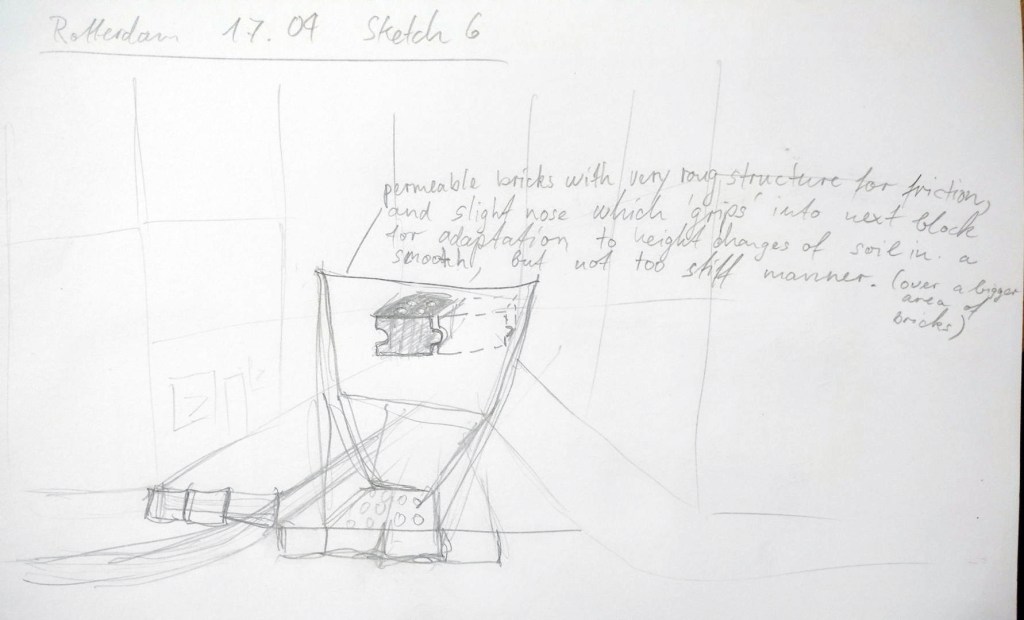 Rotterdam 17.04 Sketch 6
permeable bricks with very roug structure for friction,
and slight nose which 'grips' into next block
for adaptation to height changes of soil in a
smooth, but not too stiff manner. (over a bigger
area of
bricks)